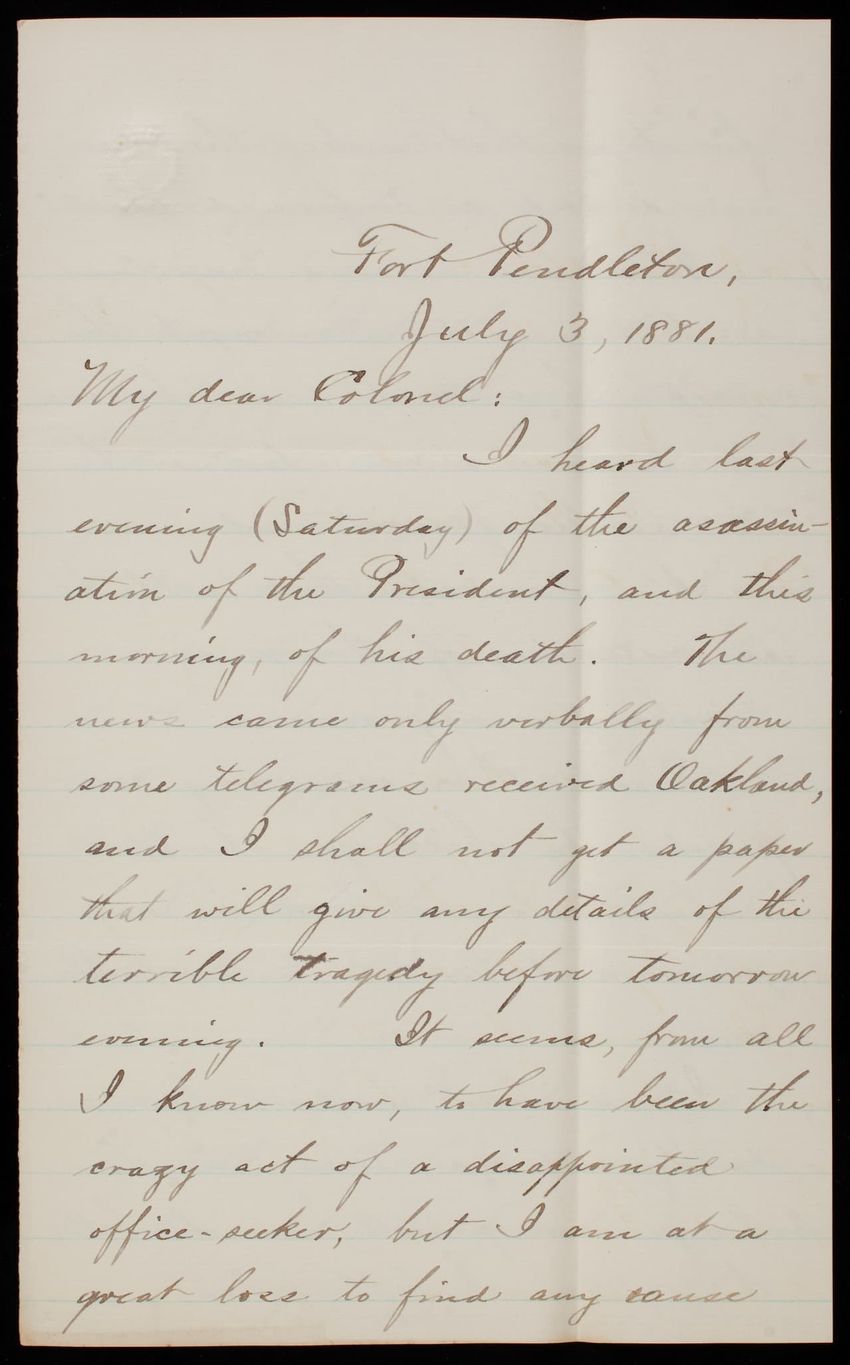 Fort Pendleton,
July 3, 1881.
My dear Colonel:
I heard last
evening (Saturday) of the asassin-
ation of the President, and this
morning, of his death. The
news came only verbally from
some telegrams received Oakland,
and I shall not get a paper
that will give any details of the
terrible tragedy before tomorrow
evening. It seems, from all
I know now, to have been the
crazy act of a disappointed
office-seeker, but I am at a
great loss to find any cause